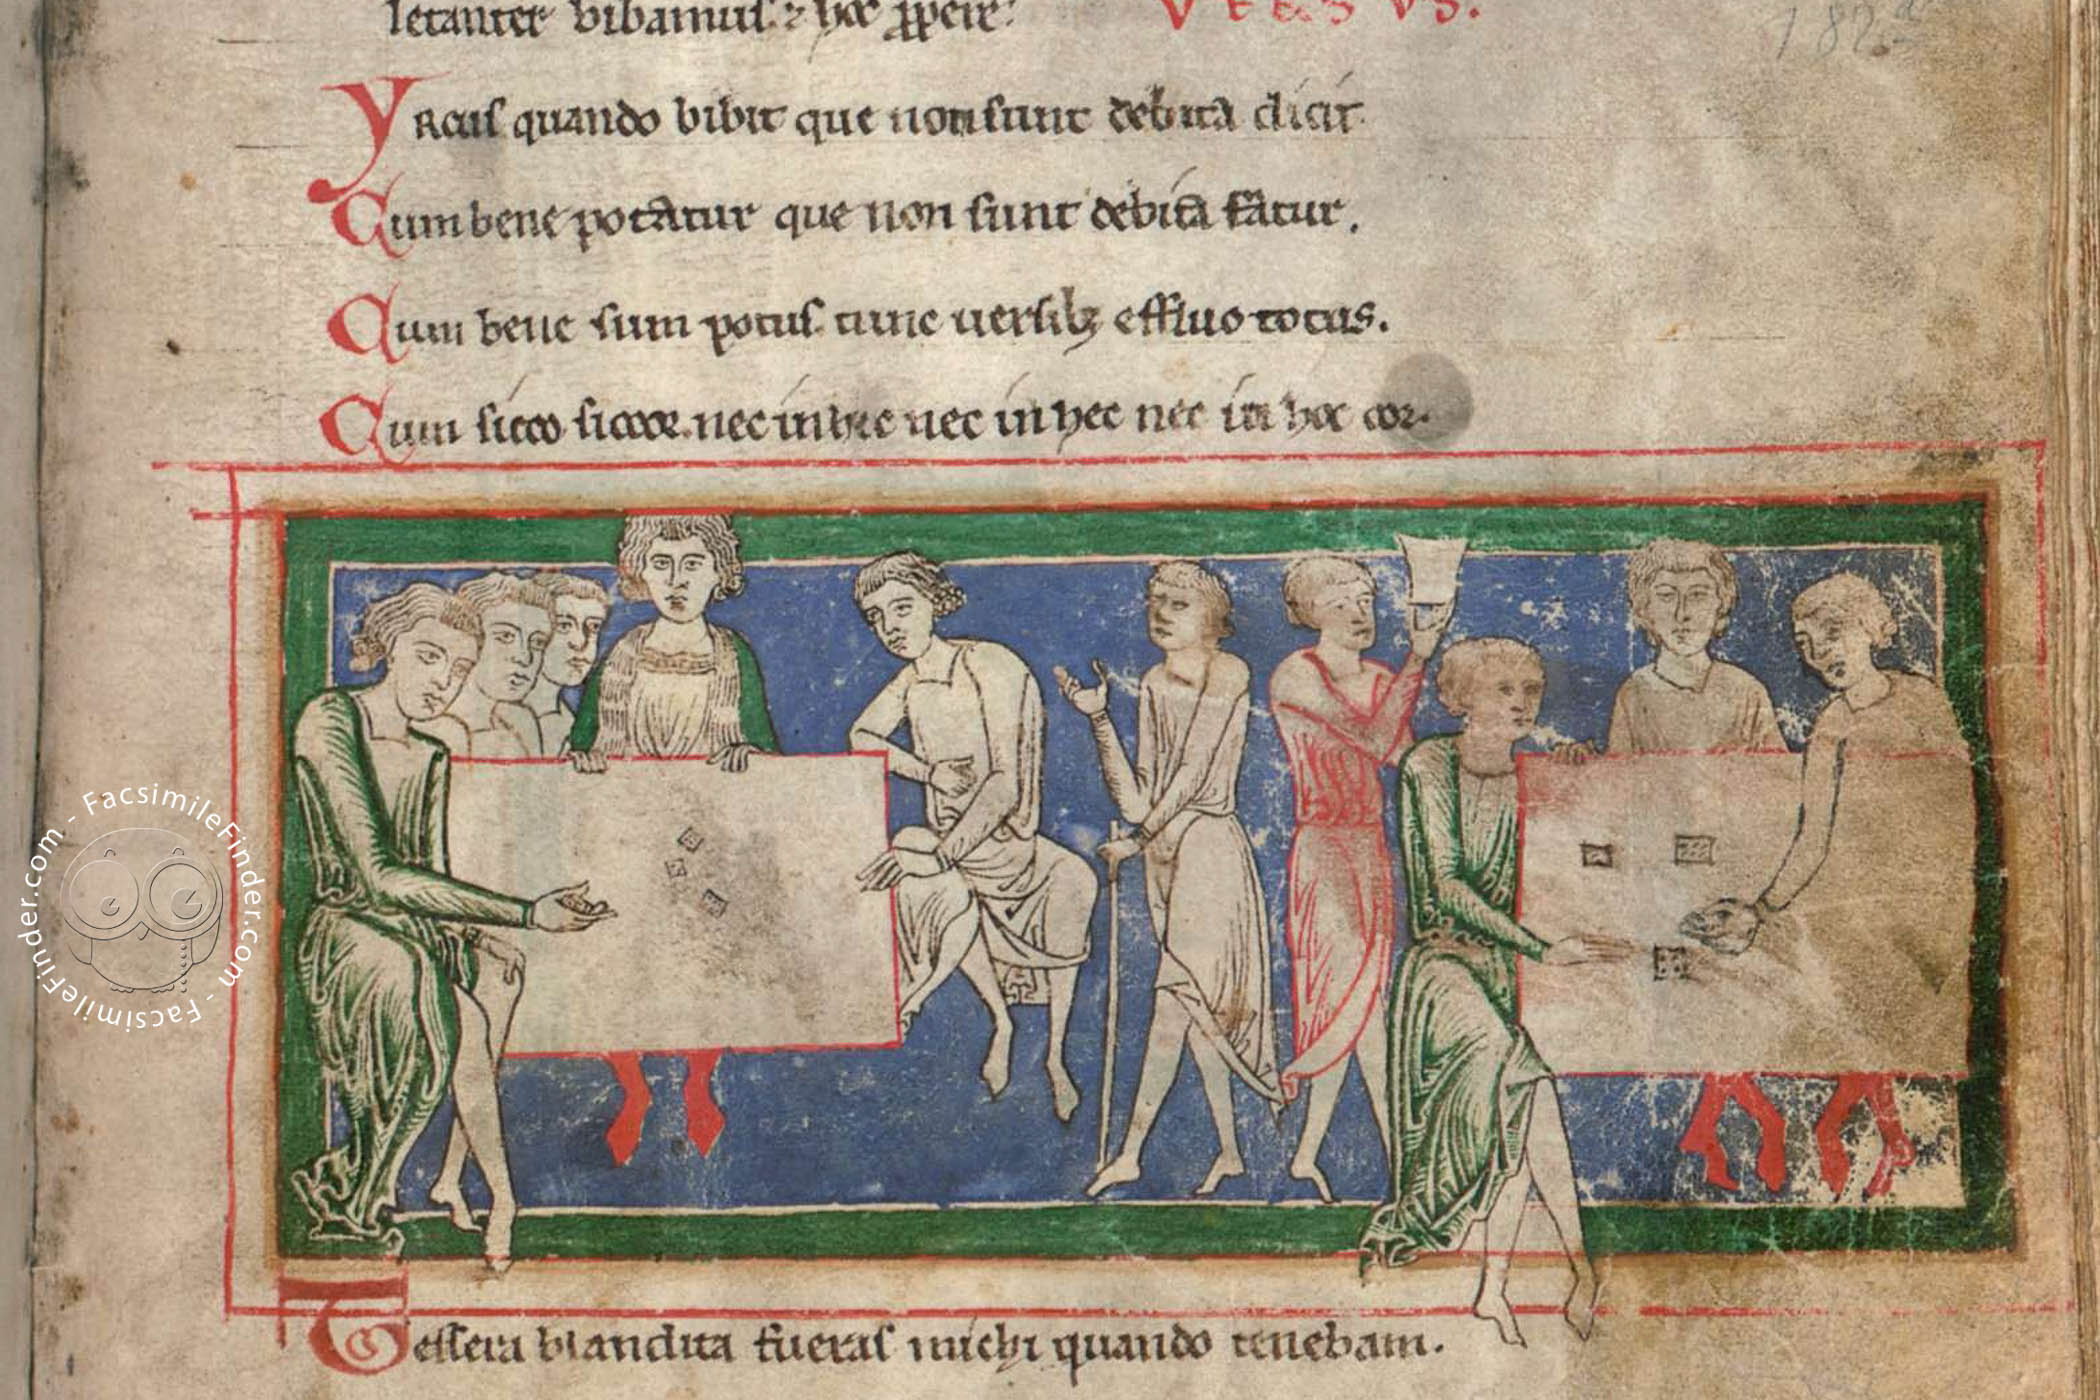 letanter bibamus ⁊ hoc ꝓpere. VERSVS. 182
Yrcus quando bibit que non sunt debita dicit
Cum bene potatur que non sunt debita fatur.
Cum bene sum potus tunc uersibꝫ effluo totus.
Cum sicco siccor. nec in hic nec in hec nec in hoc cor.
Tessera blandita fueras michi quando tenebam.
FacsimileFinder.com - FacsimileFinder.com -